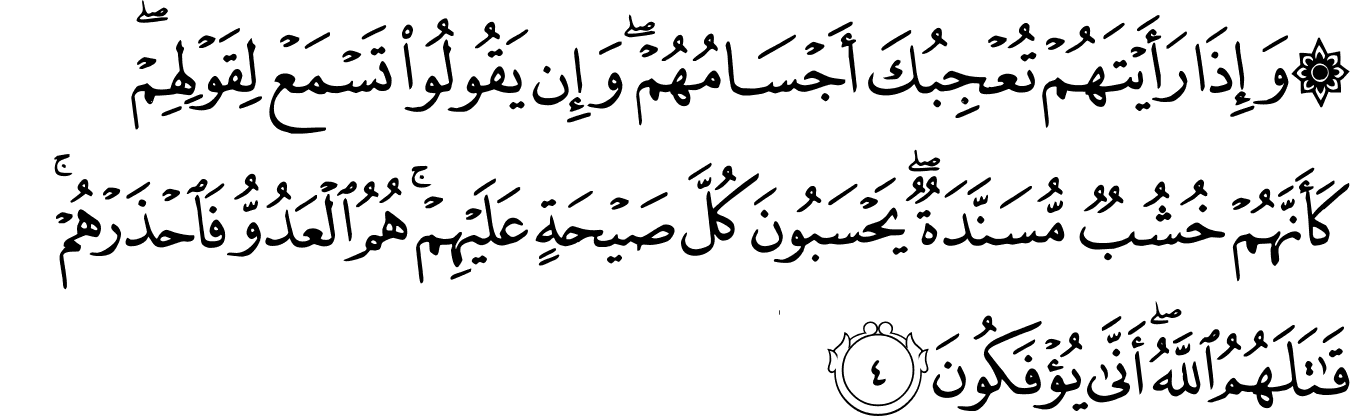 ۞ وَإِذَا رَأَيْتَهُمْ تُعْجِبُكَ أَجْسَامُهُمْ ۖ وَإِن يَقُولُوا۟ تَسْمَعْ لِقَوْلِهِمْ ۖ
كَأَنَّهُمْ خُشُبٌ مُّسَنَّدَةٌ ۖ يَحْسَبُونَ كُلَّ صَيْحَةٍ عَلَيْهِمْ ۚ هُمُ ٱلْعَدُوُّ فَٱحْذَرْهُمْ ۚ
قَٰتَلَهُمُ ٱللَّهُ ۖ أَنَّىٰ يُؤْفَكُونَ ٤